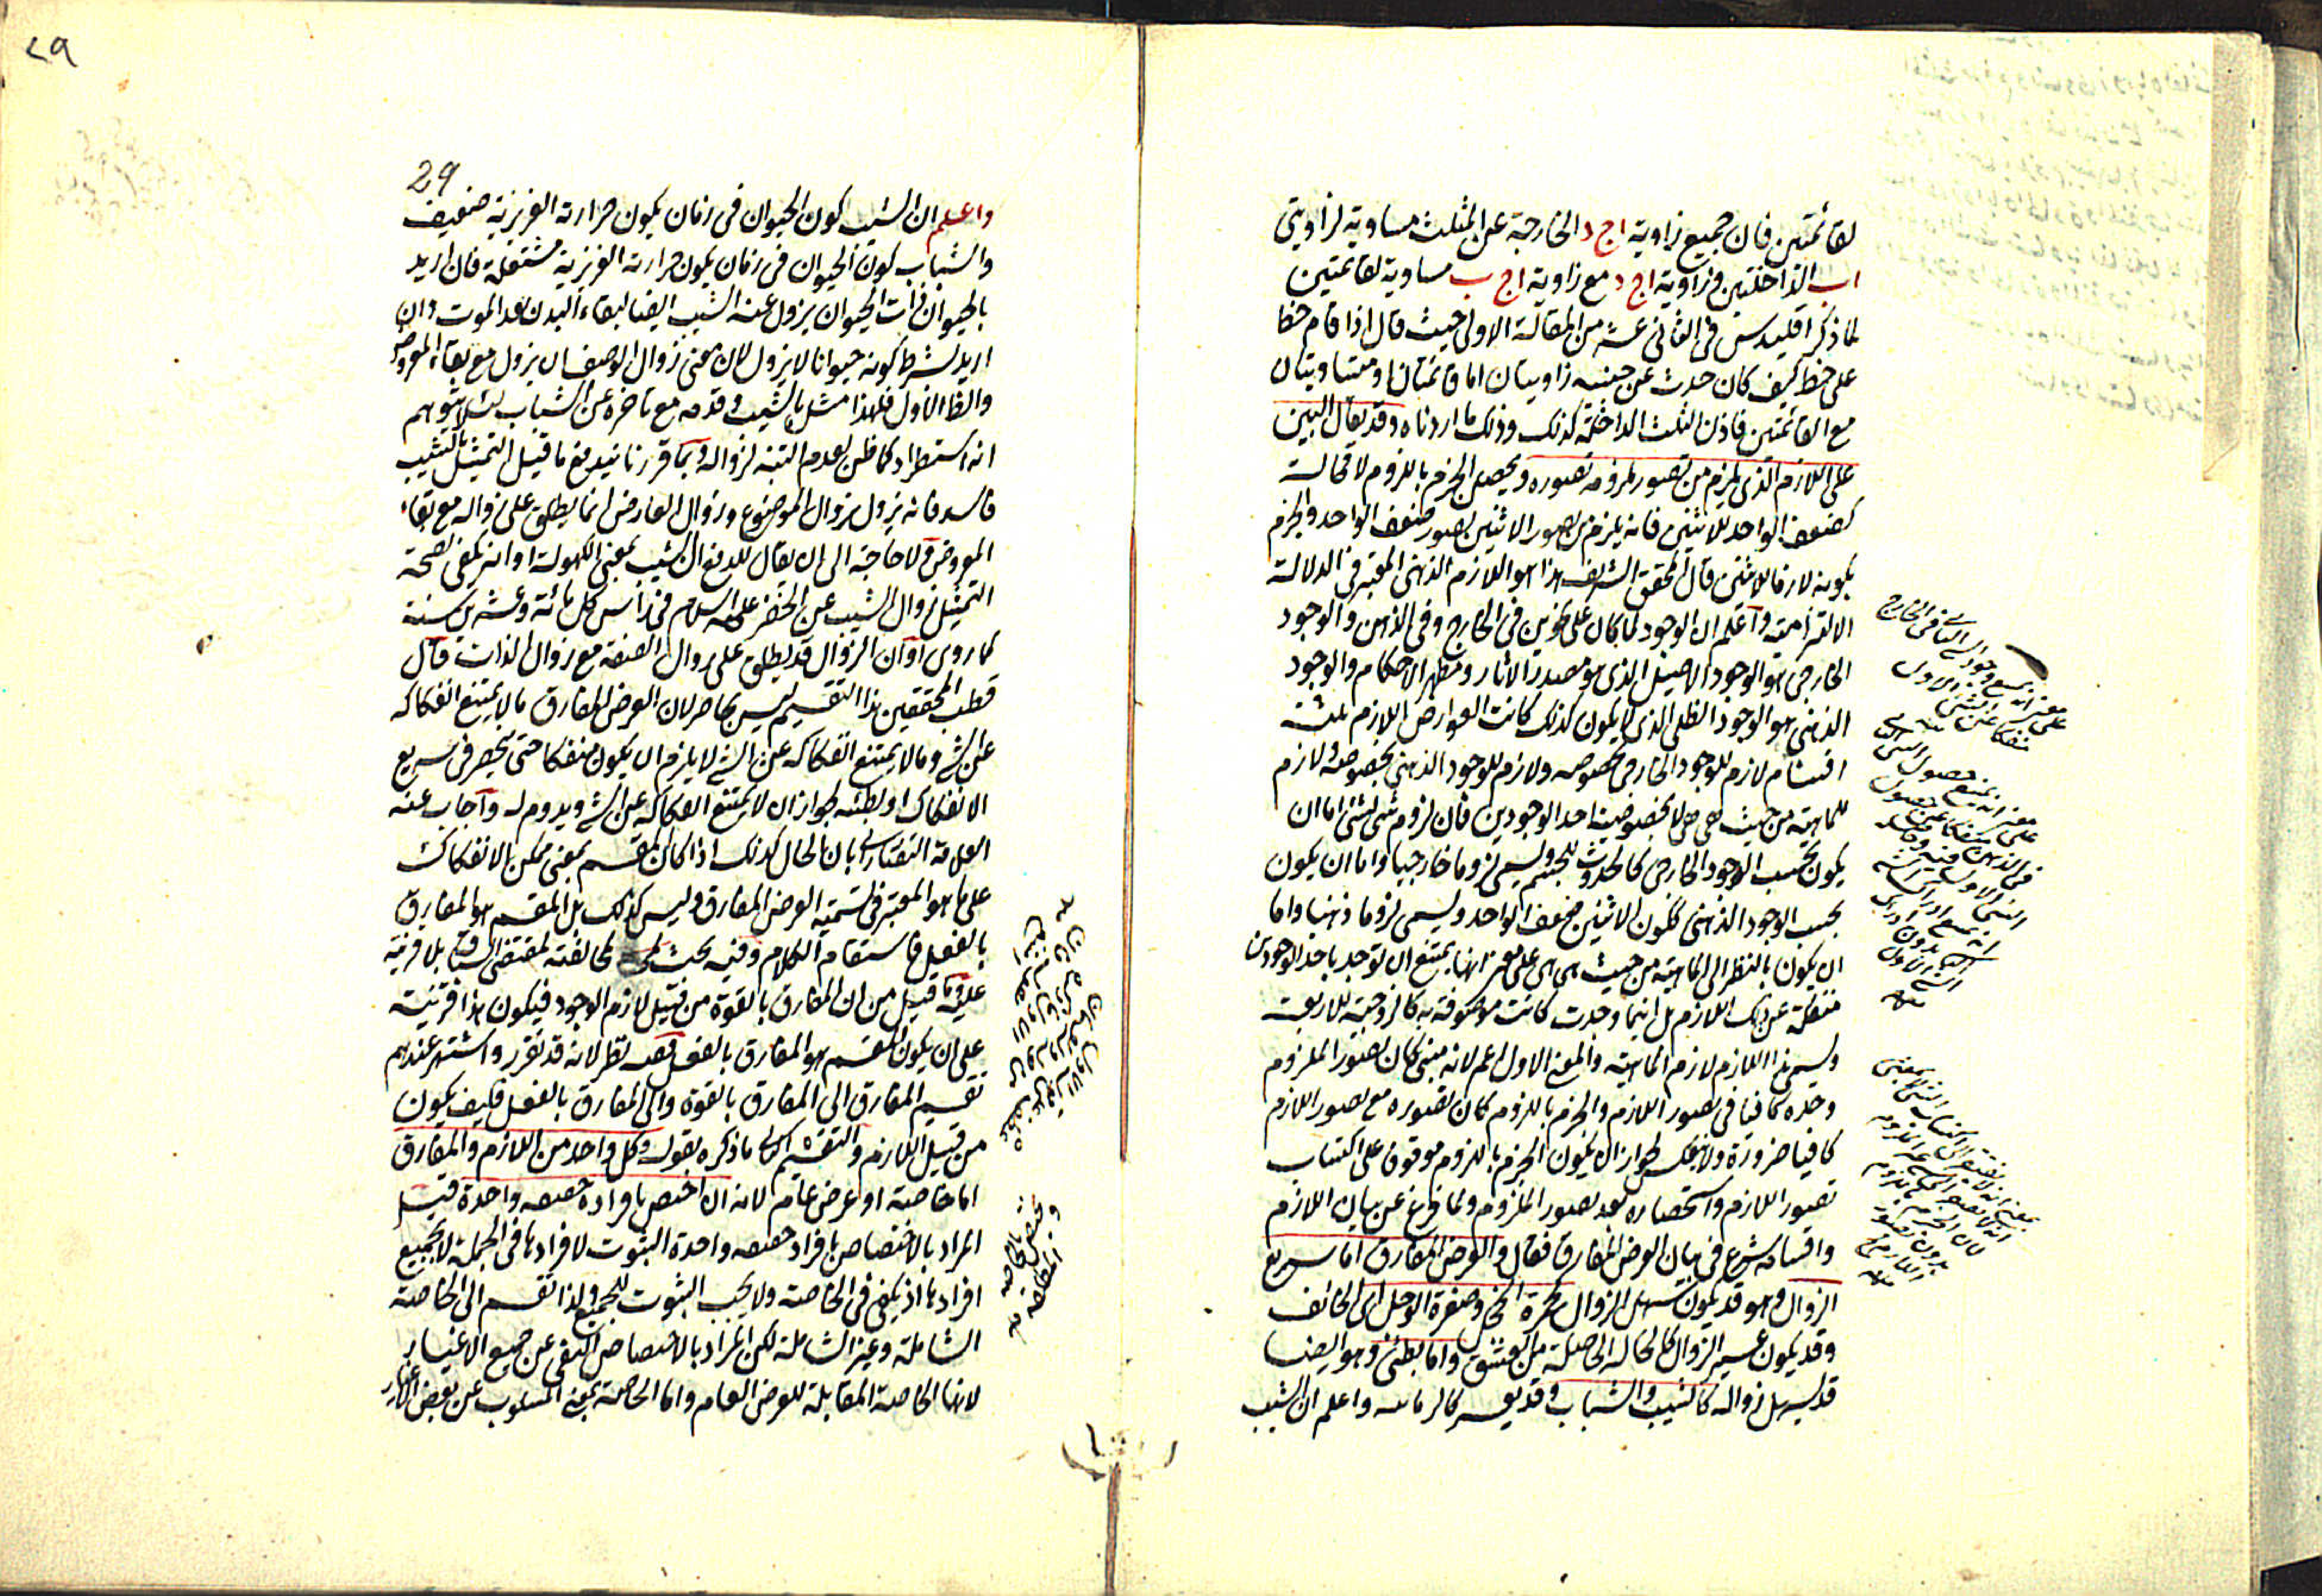 لقائمتين فان جميع زاوية اج د الخارجة عن المثلث مساوية لزاويتي
اب الداخلتين وزاوية اج د مع زاوية اج ب مساوية لقائمتين
لما ذكر اقليدس في الثاني عشر من المقالة الاولى حيث قال اذا قام خط
على خط كيف كان حدث عن جنبيه زاويتان اما قائمتان او متساويتان
مع القائمتين فاذن الثلث الداخلة كذلك وذلك ما اردناه وقد يقال البين
على اللازم الذي يلزم من تصور ملزومه تصوره ويحصل الجزم باللزوم لا محالة
كضعف الواحد للاثنين فانه يلزم من تصور الاثنين تصور ضعف الواحد والجزم
بكونه لازما للاثنين قال المحقق الشريف هذا هو اللازم الذهني المعتبر في الدلالة
الالتزامية واعلم ان الوجود لما كان على نحوين في الخارج وفي الذهن والوجود
الخارجي هو الوجود الاصيل الذي هو مصدر الاثار ومظهر الاحكام والوجود
الذهني هو الوجود الظلي الذي لا يكون كذلك كانت العوارض اللازم ثلثة
اقسام لازم للوجود الخارجي بخصوصه ولازم للوجود الذهني بخصوصه ولازم
للماهية من حيث هي هي لا بخصوصية احد الوجودين فان لزوم شئ لشئ اما ان
يكون بحسب الوجود الخارجي كالحدوث للجسم ويسمى لزوما خارجيا واما ان يكون
بحسب الوجود الذهني ككون الاثنين ضعف الواحد ويسمى لزوما ذهنيا واما
ان يكون بالنظر الى الماهية من حيث هي هي على معنى انها يمتنع ان توجد باحد الوجودين
منفكة عن ذلك اللازم بل اينما وجدت كانت موصوفة به كالزوجية للاربعة
ويسمى هذا اللازم لازم الماهية والمعنى الاول اعم لانه متى كان تصور الملزوم
وحده كافيا في تصور اللازم والجزم باللزوم كان تصوره مع تصور اللازم
كافيا ضرورة ولا ينعكس لجواز ان يكون الجزم باللزوم موقوفا على اكتساب
تصور اللازم واستحضاره بعد تصور الملزوم ولما فرغ عن بيان اللازم
واقسامه شرع في بيان العرض المفارق فقال والعرض المفارق اما سريع
الزوال وهو قد يكون سهل الزوال كحمرة الخجل وصفرة الوجل اى الخائف
وقد يكون عسير الزوال كالحالة الحاصلة من العشق واما بطئ وهو ايضا
قد يسهل زواله كالشيب والشباب وقد يعسر كالزمانه واعلم ان الشيب
على معنى انه يمتنع وجود الثاني في الخارج
منفكا عن الشئ الاول
منه
على معنى انه يمتنع حصول الشئ الثاني
في الذهن منفكا عن حصول
الشئ الاول فيه
منه
واعلم ان الشيب كون الحيوان في زمان يكون حرارته الغريزية ضعيف
والشباب كون الحيوان في زمان يكون حرارته الغريزية مشتعلة فان اريد
بالحيوان ذات الحيوان يزول عنه الشيب ايضا لبقاء البدن بعد الموت وان
اريد بشرط كونه حيوانا لا يزول لان معنى زوال الوصف ان يزول مع بقاء المعروض
والظ الاول فلهذا مثل بالشيب وقدمه مع تاخره عن الشباب لئلا يتوهم
انه استطراد كما ظن لعدم التنبه لزواله وبما قررنا يندفع ما قيل التمثيل بالشيب
فاسد فانه يزول بزوال الموضوع وزوال العارض انما يطلق على زواله مع بقاء
المعروض ولا حاجة الى ان يقال للدفع ان الشيب بمعنى الكهولة او انه يكفي لصحة
التمثيل زوال الشيب عن الخضر عليه السلام في رأس كل مائة وعشرين سنة
كما روى او ان الزوال قد يطلق على زوال الصفة مع زوال الذات قال
قطب المحققين هذا التقسيم ليس بحاصر لان العرض المفارق ما لا يمتنع انفكاكه
عن الشئ وما لا يمتنع انفكاكه عن الشئ لا يلزم ان يكون منفكا حتى ينحصر في سريع
الانفكاك او بطئه لجواز ان لا يمتنع انفكاكه عن الشئ ويدوم له واجاب عنه
العلامة التفتازاني بان الحال كذلك اذا كان المقسم بمعنى ممكن الانفكاك
على ما هو المعتبر في تسمية العرض المفارق وليس كذلك بل المقسم هو المفارق
بالفعل فاستقام الكلام وفيه بحث لمخالفته لمقتضى السياق بلا قرينة
عليه وما قيل من ان المفارق بالقوة من قبيل لازم الوجود فيكون هذا قرينة
على ان يكون المقسم هو المفارق بالفعل ففيه نظر لانه قد تقرر واشتهر عندهم
تقسيم المفارق الى المفارق بالقوة والى المفارق بالفعل فكيف يكون
من قبيل اللازم والتقسيم الثاني ما ذكره بقوله وكل واحد من اللازم والمفارق
اما خاصة او عرض عام لانه ان اختص بافراد حقيقة واحدة قيل
المراد بالاختصاص بافراد حقيقة واحدة الثبوت لافرادها في الجملة لا لجميع
افرادها اذ يكفي في الخاصة ولا يجب الثبوت للجميع ولذا تقسم الى الخاصة
الشاملة وغير الشاملة لكن المراد بالاختصاص النفي عن جميع الاغيار
لانها الخاصة المقابلة للعرض العام واما الخاصة بمعنى المسلوب عن بعض الاغيار
29